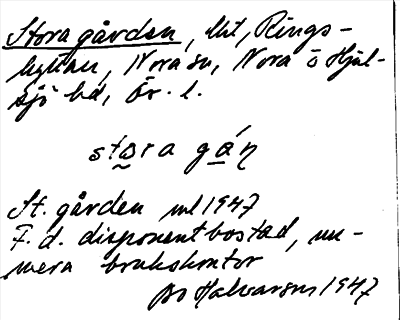 Stora gården, lht, Rings-
hyttan, Nora sn, Nora o Hjul-
sjö bd, Ör. l.
stora gán
St. gården ml 1947
F. d. disponentbostad, nu-
mera brukskontor
Bo Halvarson 1947